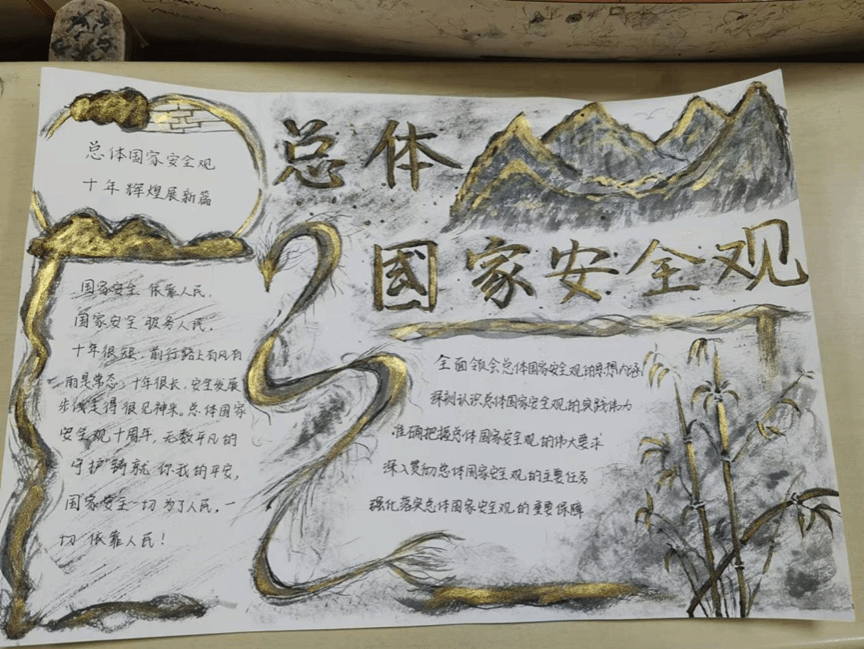 总体
国家安全观
总体国家安全观
十年辉煌展新篇
国家安全 依靠人民,
国家安全 服务人民,
十年很短,前行路上有风有
雨是常态;十年很长,安全发展
步伐走得很见神采。总体国家
安全观十周年,无数平凡的
守护铸就你我的平安,
国家安全一切为了人民,一
切依靠人民!
全面领会总体国家安全观的思想内涵
深刻认识总体国家安全观的实践伟力
准确把握总体国家安全观的伟大要求
深入贯彻总体国家安全观的主要任务
强化落实总体国家安全观的重要保障